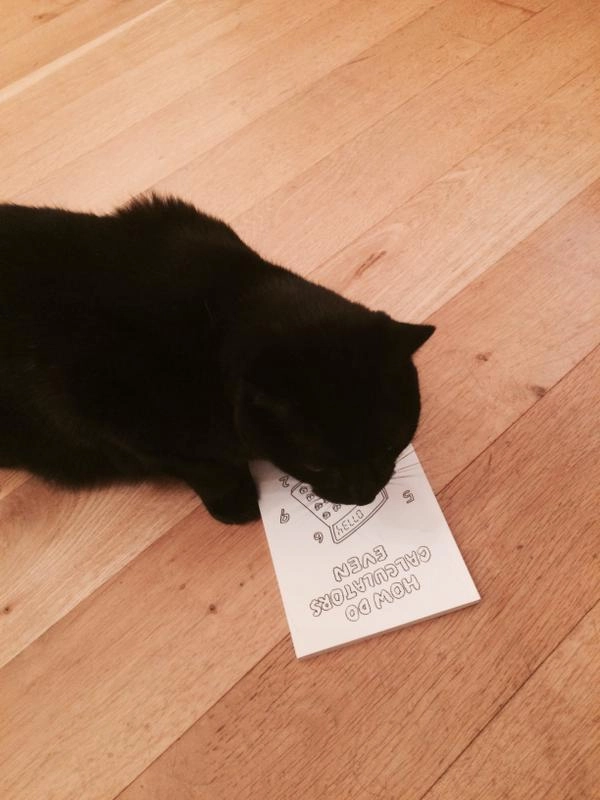 HOW DO
CALCULATORS
EVEN
9
6
5
2